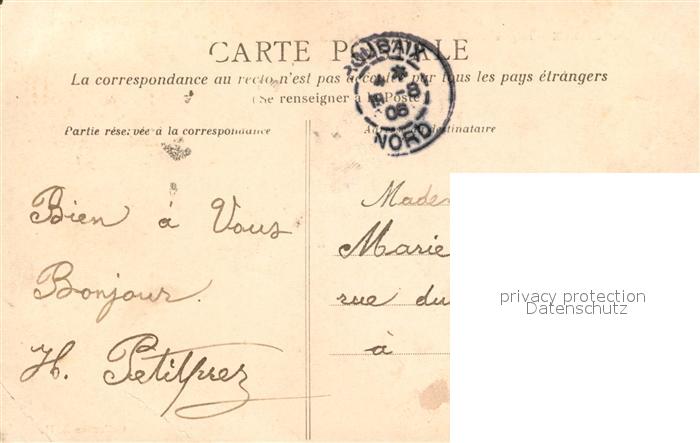 CARTE POSTALE
La correspondance au recto n'est pas acceptée par tous les pays étrangers
(Se renseigner à la Poste)
Partie réservée à la correspondance
Adresse du destinataire
ROUBAIX
NORD
06
Bien à Vous
Bonjour.
H. Petitprez
Made
Marie
rue du
à
privacy protection
Datenschutz